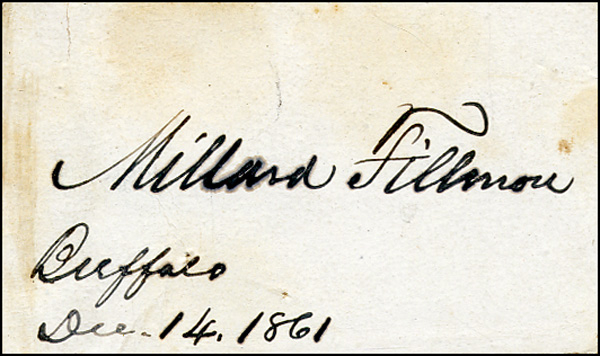 Millard Fillmore
Buffalo
Dec. 14. 1861